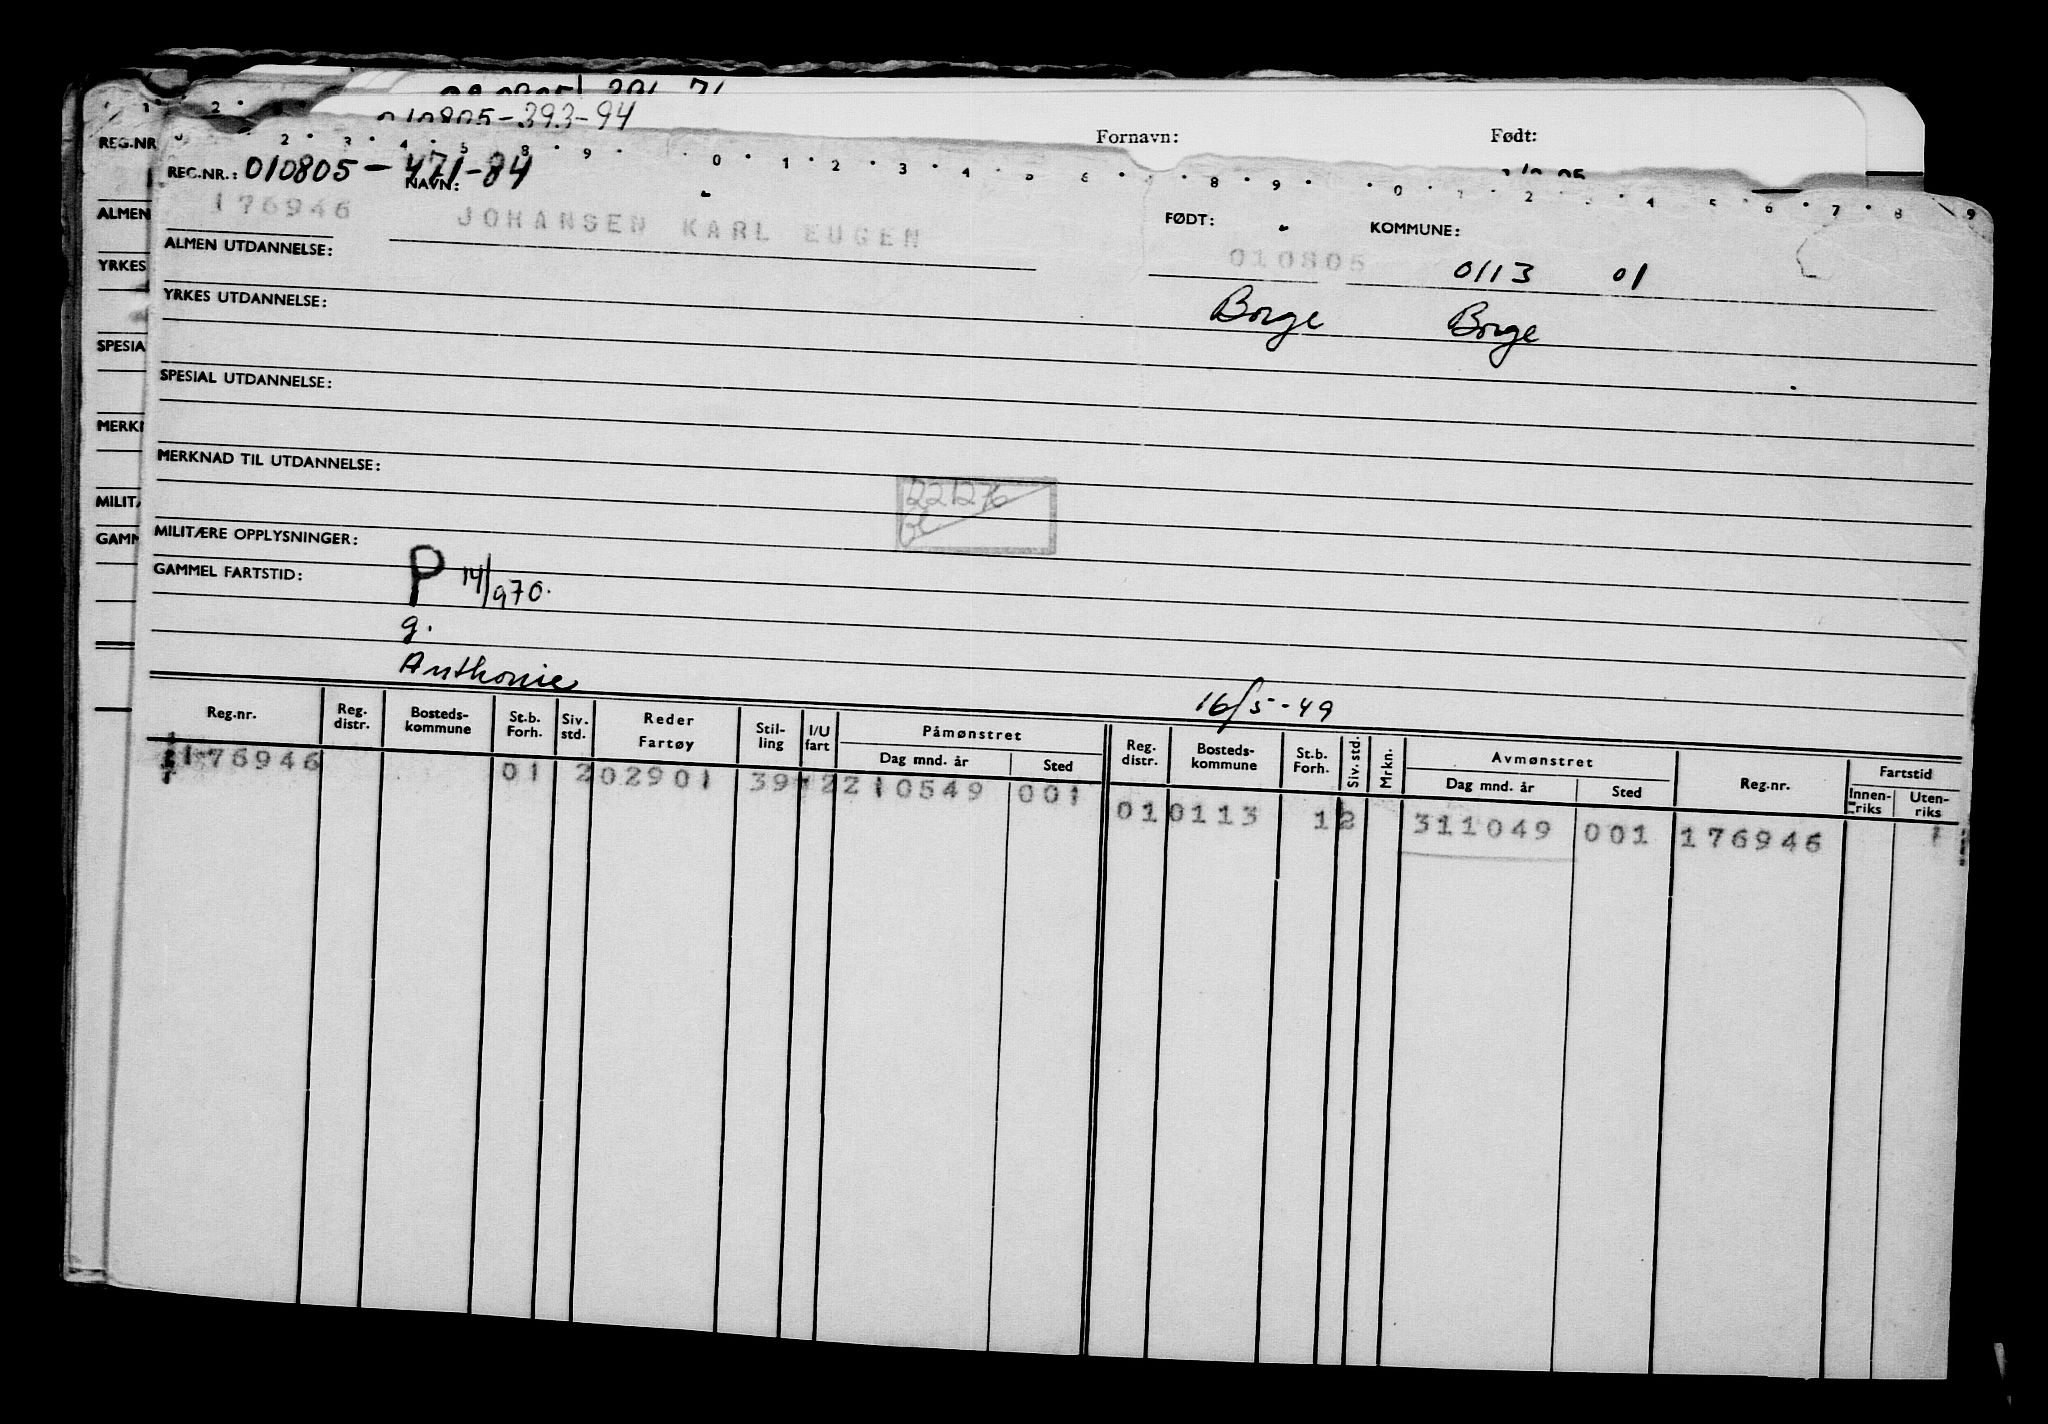 010805-393-94
Fornavn: Født:
REG.NR
REG.NR.: 010805-471-84
NAVN:
176946 JOHANSEN KARL EUGEN
FØDT: KOMMUNE:
010805 0113 01
ALMEN
ALMEN UTDANNELSE:
Borge Borge
YRKES
YRKES UTDANNELSE:
SPESIA
SPESIAL UTDANNELSE:
MERKN
MERKNAD TIL UTDANNELSE:
221276
MILITÆ
MILITÆRE OPPLYSNINGER:
GAMM
GAMMEL FARTSTID:
P 14/970.
g.
Anthonie
16/5-49
Reg.nr. Reg. distr. Bosteds-kommune St.b. Forh. Siv. std. Reder Fartøy Stil-ling I/U fart Påmønstret Dag mnd. år Sted Reg. distr. Bosteds-kommune St.b. Forh. Siv. std. Mrkn. Avmønstret Dag mnd. år Sted Reg.nr. Fartstid Innen-riks Uten-riks
176946 01 202901 39 2210549 001
010113 12 311049 001 176946 1